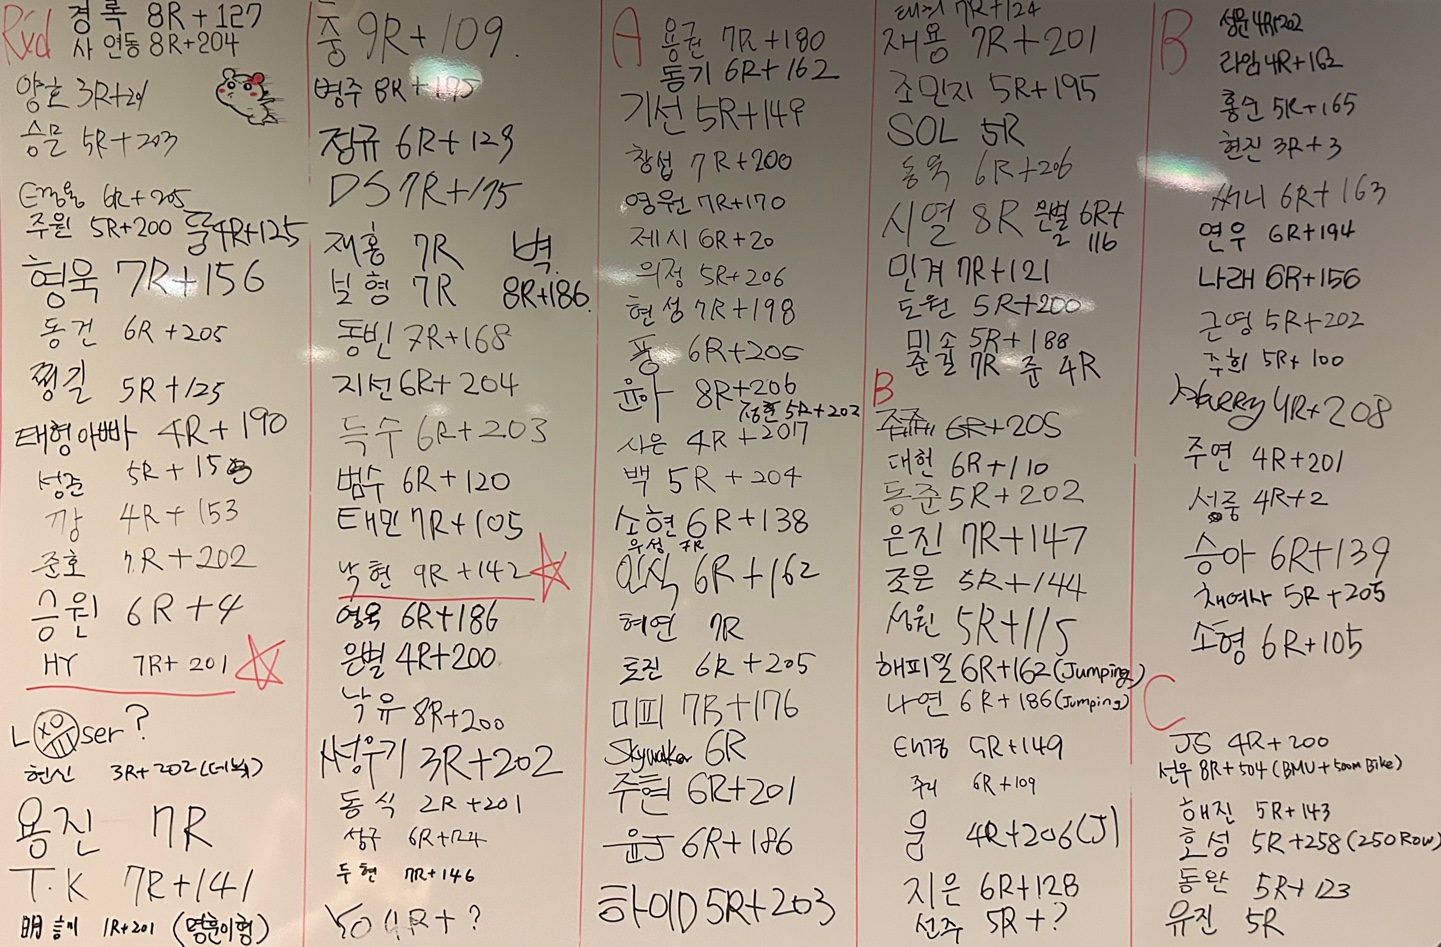 Rxd
경록 8R+127
사 연동 8R+204
양호 3R+201
승문 5R+203
6R+205
주원 5R+200
4R+125
형욱 7R+156
동건 6R+205
찡길 5R+125
태형아빠 4R+190
성준
5R+15
깡 4R+153
준호 7R+202
승원 6R+4
HY 7R+201
Loser?
현신 3R+202(데뷔)
용진 7R
T.K 7R+141
明訓 1R+201 (명훈이형)
중 9R+109.
병주 8R+175
정규 6R+129
DS 7R+175
재홍 7R
벽 8R+186.
보형 7R
동빈 7R+168
지선 6R+204
득수 6R+203
범수 6R+120
태민 7R+105
낙현 9R+142
영욱 6R+186
은별 4R+200
낙유 8R+200
성우기 3R+202
동식 2R+201
상구 6R+124
두현 7R+146
YO 4R+?
A
용권 7R+180
동기 6R+162
기선 5R+149
창섭 7R+200
영원 7R+170
제시 6R+20
의정 5R+206
현성 7R+198
퐁 6R+205
윤아 8R+206
정훈 5R+202
사은 4R+2017
백 5R+204
소현 6R+138
우성 7R
인식 6R+162
혜연 7R
토진 6R+205
미피 7R+176
Skywalker 6R
주현 6R+201
윤J 6R+186
하이D 5R+203
태현 7R+124
재용 7R+201
조민지 5R+195
SOL 5R
동욱 6R+206
시열 8R
은별2 6R+116
민겨 7R+121
도원 5R+200
미소 5R+188
준길 7R 준 4R
B
6R+205
대헌 6R+110
동준 5R+202
은진 7R+147
조은 5R+144
성원 5R+115
해피밀 6R+162(Jumping)
나연 6R+186(Jumping)
태경 5R+149
주리 6R+109
움 4R+206(J)
지은 6R+128
선주 5R+?
B
성윤 4R+202
라암 4R+162
홍순 5R+165
현진 3R+3
써니 6R+163
연우 6R+194
나래 6R+156
근영 5R+202
주희 5R+100
Harry 4R+208
주연 4R+201
성중 4R+2
승아 6R+139
채여사 5R+205
소형 6R+105
C
JS 4R+200
선우 8R+504(BMU+500m Bike)
해진 5R+143
호성 5R+258(250Row)
동완 5R+123
유진 5R